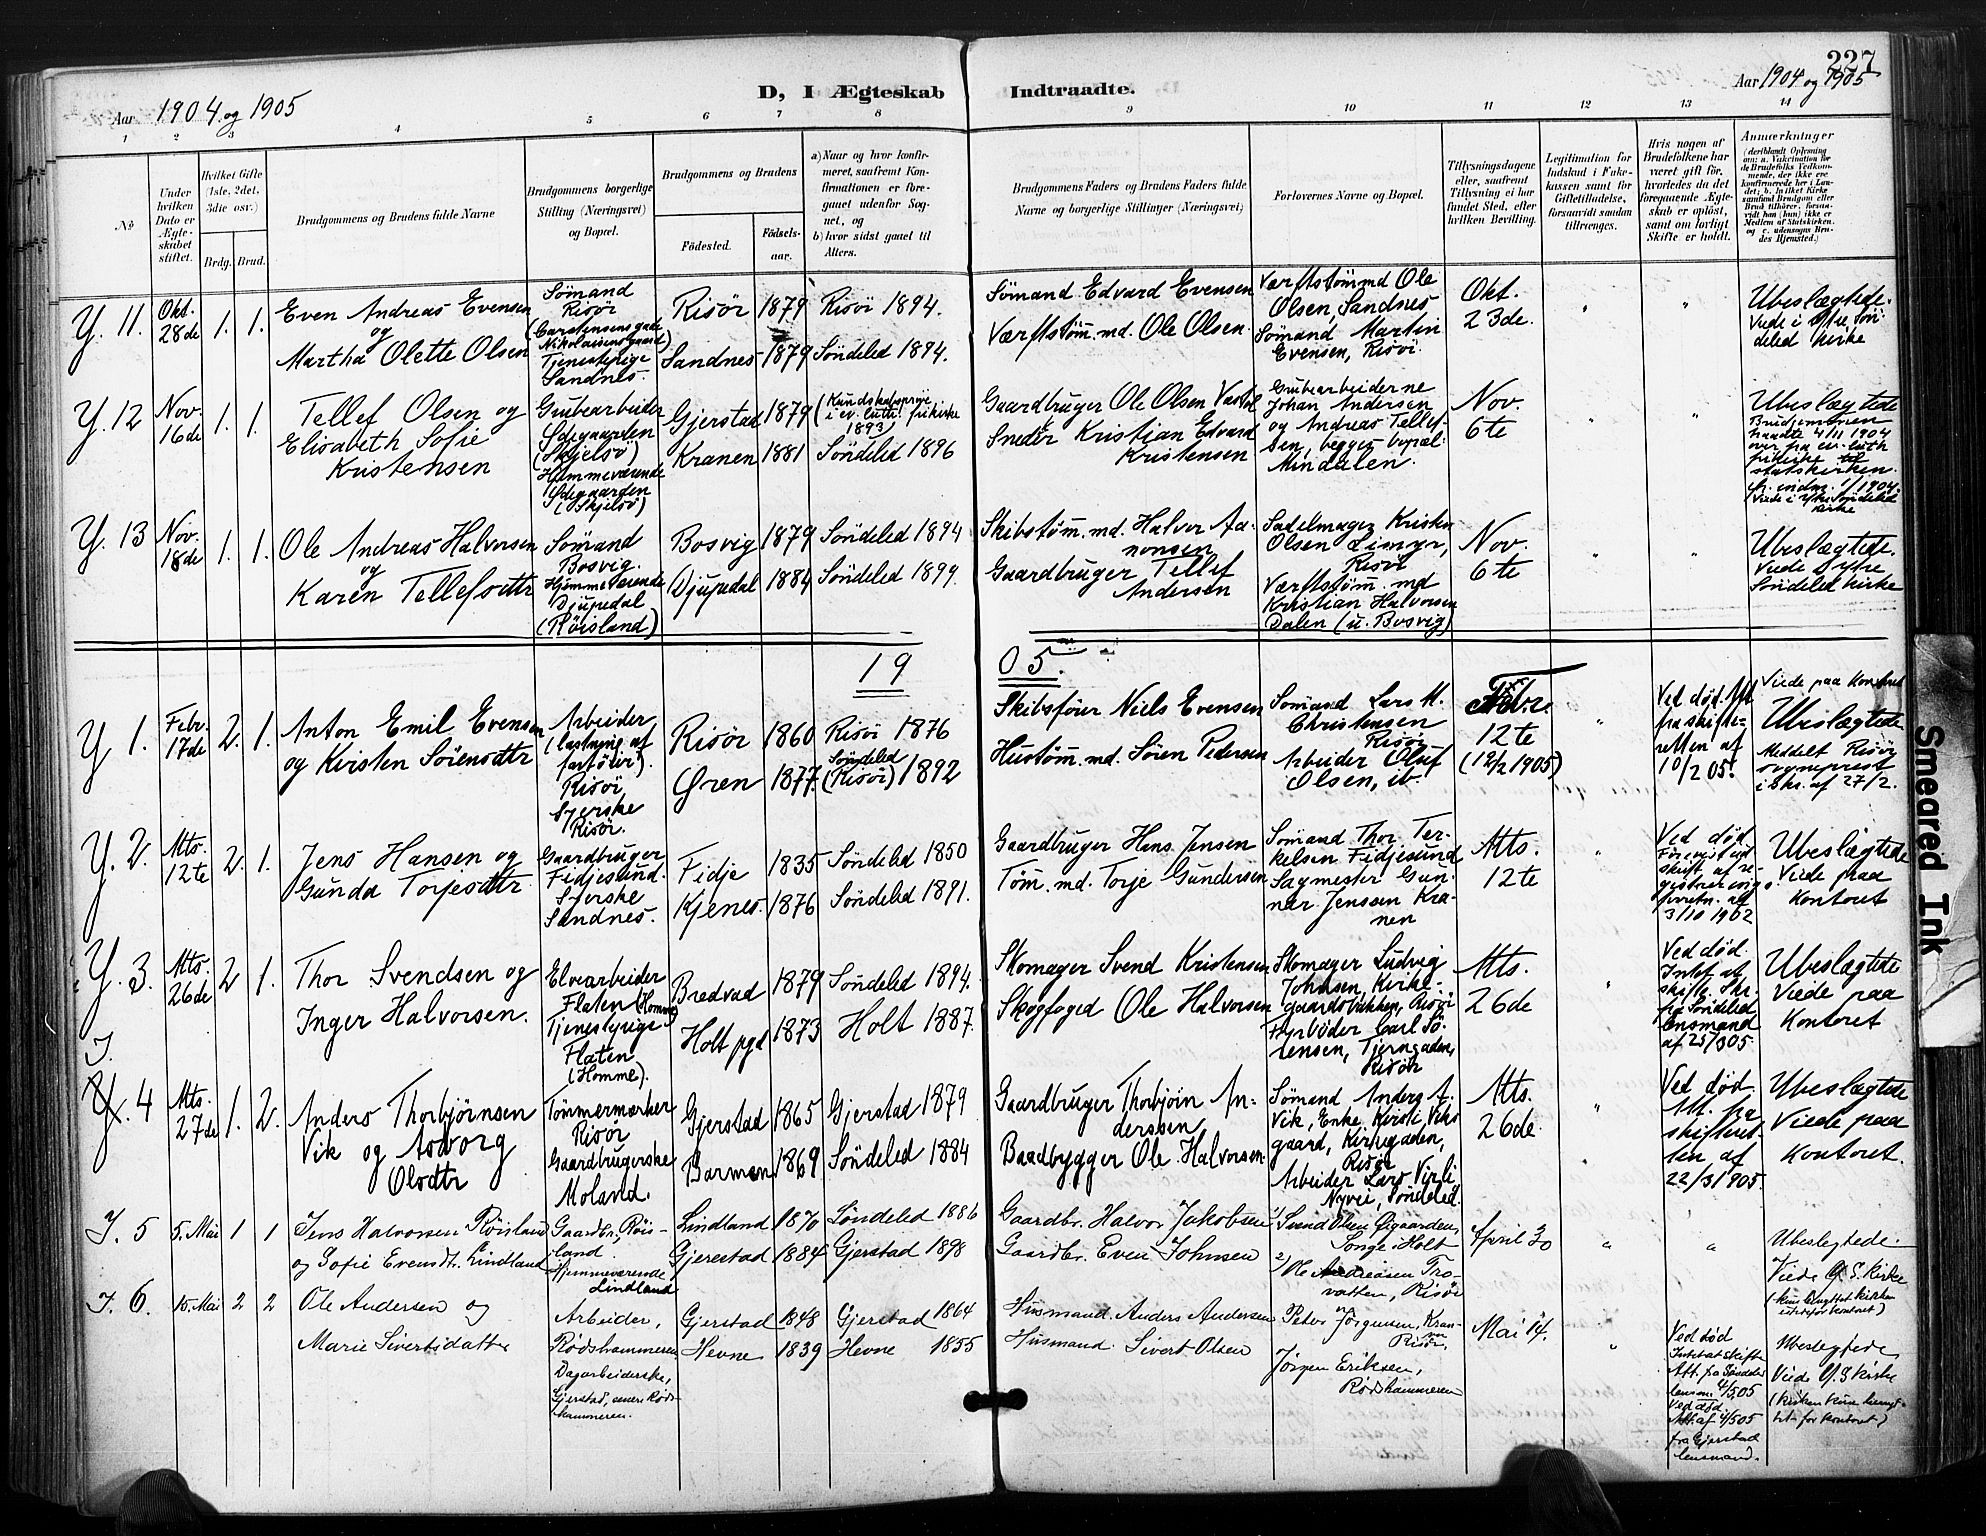 227
Aar 1904 og 1905
D, I Ægteskab Indtraadte.
Aar 1904 og 1905
1 2 3 4 5 6 7 8 9 10 11 12 13 14
No
Under hvilken Dato er Ægteskabet stiftet.
Hvilket Gifte (1ste, 2det, 3die osv.)
Brdg. Brud.
Brudgommens og Brudens fulde Navne
Brudgommens borgerlige Stilling (Næringsvei) og Bopæl.
Brudgommens og Brudens
Fødested. Fødselsaar.
a) Naar og hvor konfirmeret, saafremt Konfirmationen er foregaaet udenfor Sognet, og
b) hvor sidst gaaet til Alters.
Brudgommens Faders og Brudens Faders fulde Navne og borgerlige Stillinger (Næringsvei)
Forlovernes Navne og Bopæl.
Tillysningsdagene eller, saafremt Tillysning ei har fundet Sted, efter hvilken Bevilling.
Legitimation for Indskud i Enkekassen samt for Giftetilladelse, forsaavidt saadan tiltrænges.
Hvis nogen af Brudefolkene har været gift før, hvorledes da det foregaaende Ægteskab er opløst, samt om lovligt Skifte er holdt.
Anmærkninger
Y. 11. Okt. 28de 1. 1.
Even Andreas Evensen
og
Martha Olette Olsen
Sømand
Risør
(Carstensensgade
Nikolaisensgaard)
Tjenestepige
Sandnes.
Risør 1879 Risør 1894.
Sandnes 1879 Søndeled 1894.
Sømand Edvard Evensen
Værftstømm.md. Ole Olsen.
Værftstømmd Ole
Olsen, Sandnes
Sømand Martin
Evensen, Risør.
Okt.
23de.
" "
Ubeslægtede.
Viede i Ytre Søn-
deled Kirke
Y. 12 Nov. 16de 1. 1.
Tellef Olsen og
Elisabeth Sofie
Kristensen
Grubearbeider
Ødegaarden
(Skjelsø)
Hjemmeværende
Ødegaarden
(Skjelsø)
Gjerstad 1879
Kranen 1881 Søndeled 1896
(Kundskabsprøve
i ev. luth. frikirke
1893)
Gaardbruger Ole Olsen
Snedker Kristian Edvard
Kristensen
Grubearbeiderne
Johan Andersen
og Andreas Tellef-
sen, begges bopæl:
Mindalen.
Nov.
6te
"
Ubeslægtede
Brudgommen
traadte 4/11 1904
over fra ev. luth.
frikirke til
statskirken.
Viede i Ytre Søndeled
Kirke
Y. 13 Nov. 18de 1. 1.
Ole Andreas Halvorsen
og
Karen Tellefsdtr
Sømand
Bosvig.
Hjemmeværende
Djupedal
(Røisland)
Bosvig 1879 Søndeled 1894
Djupedal 1884 Søndeled 1899.
Skibstømm.md. Halvor Aa-
nonsen
Gaardbruger Tellef
Andersen
Sadelmager Kristen
Olsen Limyr,
Risør
Værftstømm. md
Kristian Halvorsen
Dalen (u. Bosvig)
Nov.
6te
" "
Ubeslægtede.
Viede i Ytre
Søndeled Kirke
19 05.
Y 1. Febr. 17de 2. 1.
Anton Emil Evensen
og Kirsten Sørensdtr
Arbeider
(lastning af
fartøier).
Risør
Syerske
Risør.
Risør 1860 Risør 1876
Øren 1877. Søndeled (Risør) 1892
Skibsfører Niels Evensen
Hustømm.md. Søren Pedersen
Sømand Lars M.
Christensen
Risør
Arbeider Oluf
Olsen, ib.
Febr.
12te
(12/2 1905)
"
Ved død. Att
fra skifte-
retten af
10/2 05.
Viede paa kontoret
Ubeslægtede
Meddelt Risør
sogneprest
i skr. af 27/2.
Y. 2. Mts. 12te 2. 1.
Jens Hansen og
Gunda Torjesdtr.
Gaardbruger
Fidjesund.
Syerske
Sandnes.
Fidje 1835 Søndeled 1850
Kjenes. 1876 Søndeled 1891.
Gaardbruger Hans Jensen
Tøm. md. Torje Gundersen
Sømand Thor Ter-
kelsen Fidjesund
Sagmester Gun-
nar Jenssen Kra-
nen
Mts.
12te
"
Ved død
Forevist ud
skrift af re-
gistrerings
forretn. af
3/10 1902
Ubeslægtede
Viede paa
Kontoret
Y. 3. Mts. 26de 2 1.
Thor Svendsen og
Inger Halvorsen.
Elvearbeider
Flaten (Homme)
Tjenestepige
Flaten
(Homme).
Bredvad 1879 Søndeled 1894.
Holt pgd 1873 Holt 1887.
Skomager Svend Kristensen
Skogfoged Ole Halvorsen
Skomager Ludvig
Johnsen, Kirke-
gaardsbakken, Risør
Fyrbøder Carl Sø-
rensen, Tjerngaden,
Risør
Mts.
26de
"
Ved død.
Intet at
skifte. Skr.
fra Søndeled
lensmand
af 25/3 05.
Ubeslægtede
Viede paa
Kontoret
I. 4 Mts. 27de 1. 2.
Anders Thorbjørnsen
Vik og Asborg
Olsdtr
Tømmermerker
Risør
Gaardbrugerske
Moland.
Gjerstad 1865 Gjerstad 1879
Barmen 1869 Søndeled 1884
Gaardbruger Thorbjørn An-
derssen.
Baadbygger Ole Halvorsen.
Sømand Anders A.
Vik, Enke, Kirsti Viks
gaard, Kirkegaden,
Risør
Arbeider Lars Virli
Nyvei, Søndeled.
Mts.
26de.
"
Ved død
Att. fra
skifteret-
ten af
22/3 1905.
Ubeslægtede
Viede paa
Kontoret.
I. 5 5. Mai 1 1
Jens Halvorsen Røisland
og Sofie Evensdt. Lindland
Gaardbr., Røis-
land.
Hjemmeværende
Lindland
Lindland 1870 Søndeled 1886
Gjerestad 1884 Gjerstad 1898
Gaardbr. Halvor Jakobsen
Gaardbr. Even Johnsen
1) Svend Olsen Øigaarden,
Songe i Holt
2) Ole Andreasen Tro-
vatten, Risør
April 30
" "
Ubeslegtede.
Viede Y. S. Kirke
(kun benyttet kirken
istedetfor kontoret)
I. 6. 15. Mai 2 2
Ole Andersen og
Marie Sivertsdatter
Arbeider,
Rødshammeren,
Dagarbeiderske,
Gjerstad, senere Røds-
hammeren.
Gjerstad 1848 Gjerstad 1864
Hevne 1839 Hevne 1855
Husmand Anders Andersen
Husmand Sivert Olsen
Peter Jørgensen, Kran-
Risør,
Jørgen Eriksen,
Rødshammeren
Mai 14.
"
Ved død
Intet at skifte
Att. fra Søndeled
lensm. 4/5 05
Ved død
Att. af 4/5 05
fra Gjerstad
lensmand.
Ubeslegtede,
Viede Y. S. Kirke
(Kirken kun benyt-
tet for kontoret)
Smeared Ink